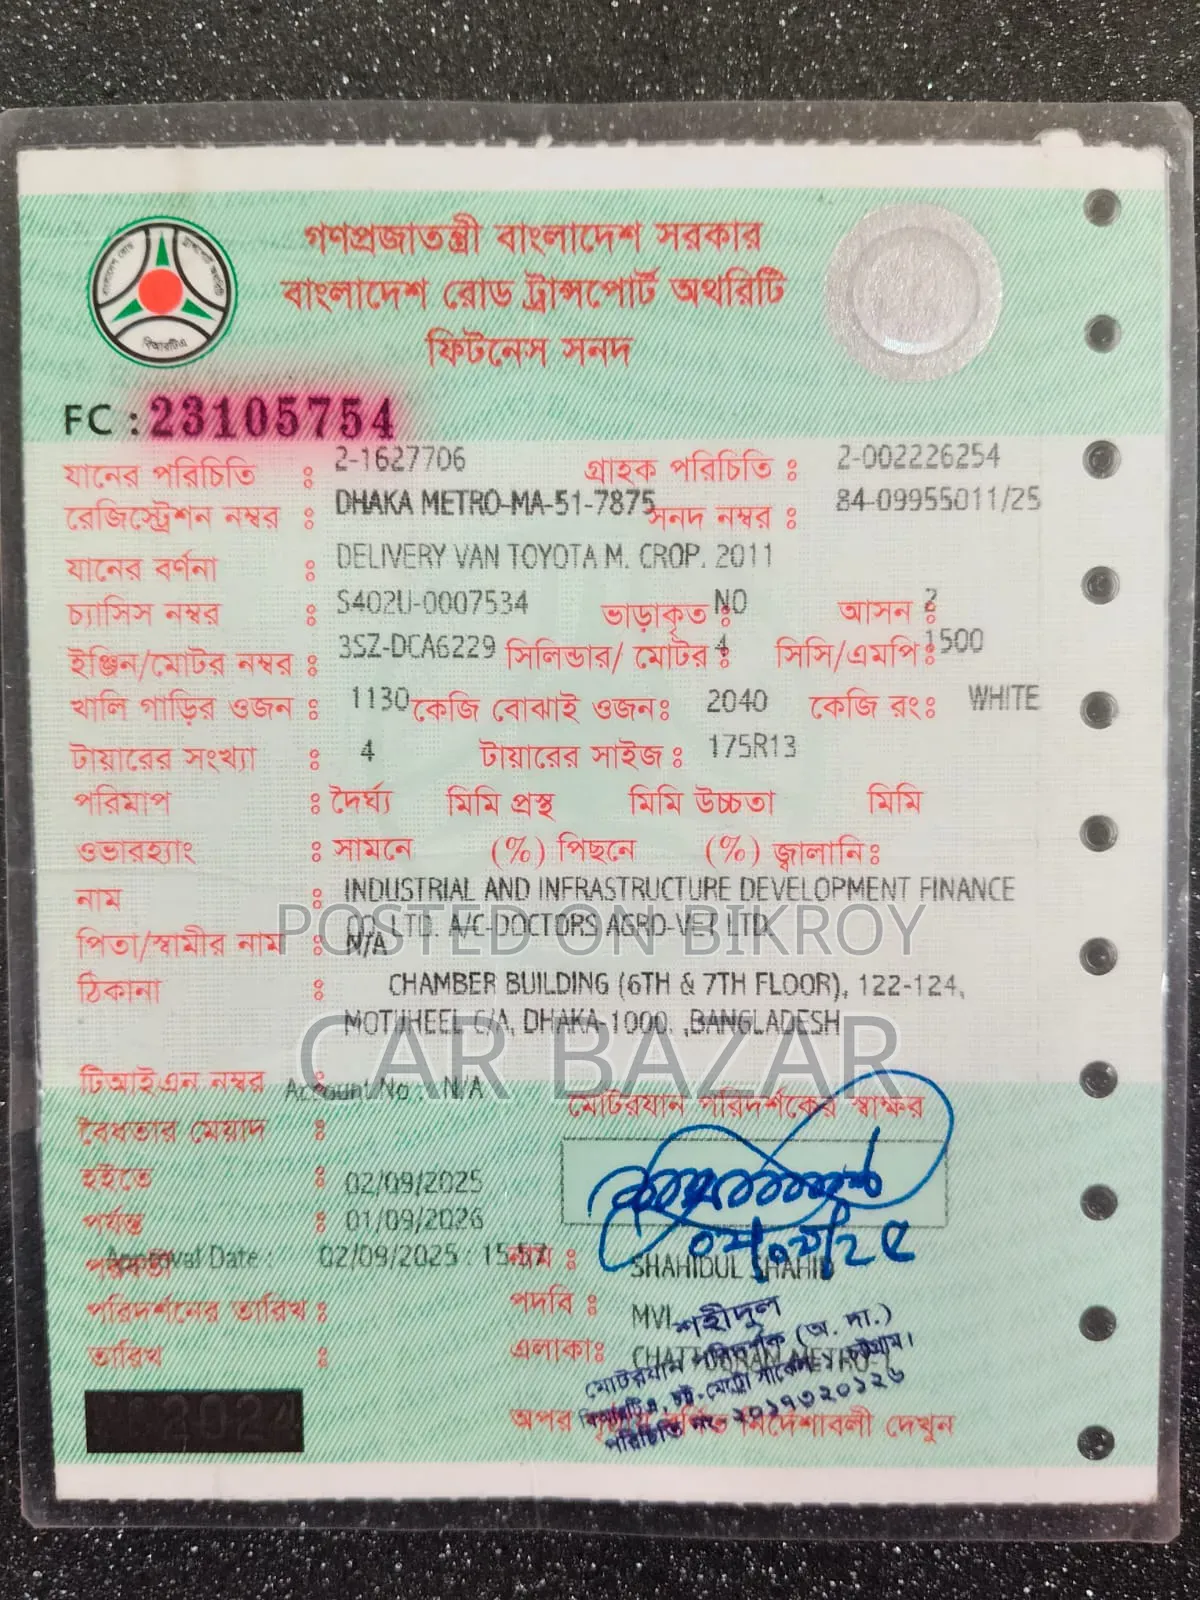 গণপ্রজাতন্ত্রী বাংলাদেশ সরকার
বাংলাদেশ রোড ট্রান্সপোর্ট অথরিটি
ফিটনেস সনদ
বিআরটিএ
FC : 23105754
যানের পরিচিতি : 2-1627706 গ্রাহক পরিচিতি : 2-002226254
রেজিস্ট্রেশন নম্বর : DHAKA METRO-MA-51-7875 সনদ নম্বর : 84-09955011/25
যানের বর্ণনা : DELIVERY VAN TOYOTA M. CROP. 2011
চ্যাসিস নম্বর : S402U-0007534 ভাড়াকৃত : NO আসন : 2
ইঞ্জিন/মোটর নম্বর : 3SZ-DCA6229 সিলিন্ডার/ মোটর : 4 সিসি/এমপি : 1500
খালি গাড়ির ওজন : 1130 কেজি বোঝাই ওজন : 2040 কেজি রং : WHITE
টায়ারের সংখ্যা : 4 টায়ারের সাইজ : 175R13
পরিমাপ : দৈর্ঘ্য মিমি প্রস্থ মিমি উচ্চতা মিমি
ওভারহ্যাং : সামনে (%) পিছনে (%) জ্বালানি :
নাম : INDUSTRIAL AND INFRASTRUCTURE DEVELOPMENT FINANCE
CO. LTD. A/C-DOCTORS AGRO-VET LTD.
POSTED ON BIKROY
পিতা/স্বামীর নাম : N/A
ঠিকানা : CHAMBER BUILDING (6TH & 7TH FLOOR), 122-124,
MOTIJHEEL C/A, DHAKA-1000. ,BANGLADESH
CAR BAZAR
টিআইএন নম্বর : Account No : N/A
মোটরযান পরিদর্শকের স্বাক্ষর
বৈধতার মেয়াদ :
হইতে : 02/09/2025
পর্যন্ত : 01/09/2026
Approval Date : 02/09/2025 : 15:57 নাম : SHAHIDUL SHAHID
পরবর্তী
পরিদর্শনের তারিখ : পদবি : MVI
শহীদুল
মোটরযান পরিদর্শক (অ. দা.)
তারিখ : এলাকাঃ CHATTOGRAM METRO-1
বিআরটিএ, চট্ট-মেট্রো সার্কেল-১, চট্টগ্রাম।
পরিচিতি নং-২০১৭৩২০১২৬
2024
অপর পৃষ্ঠায় বর্ণিত নির্দেশাবলী দেখুন